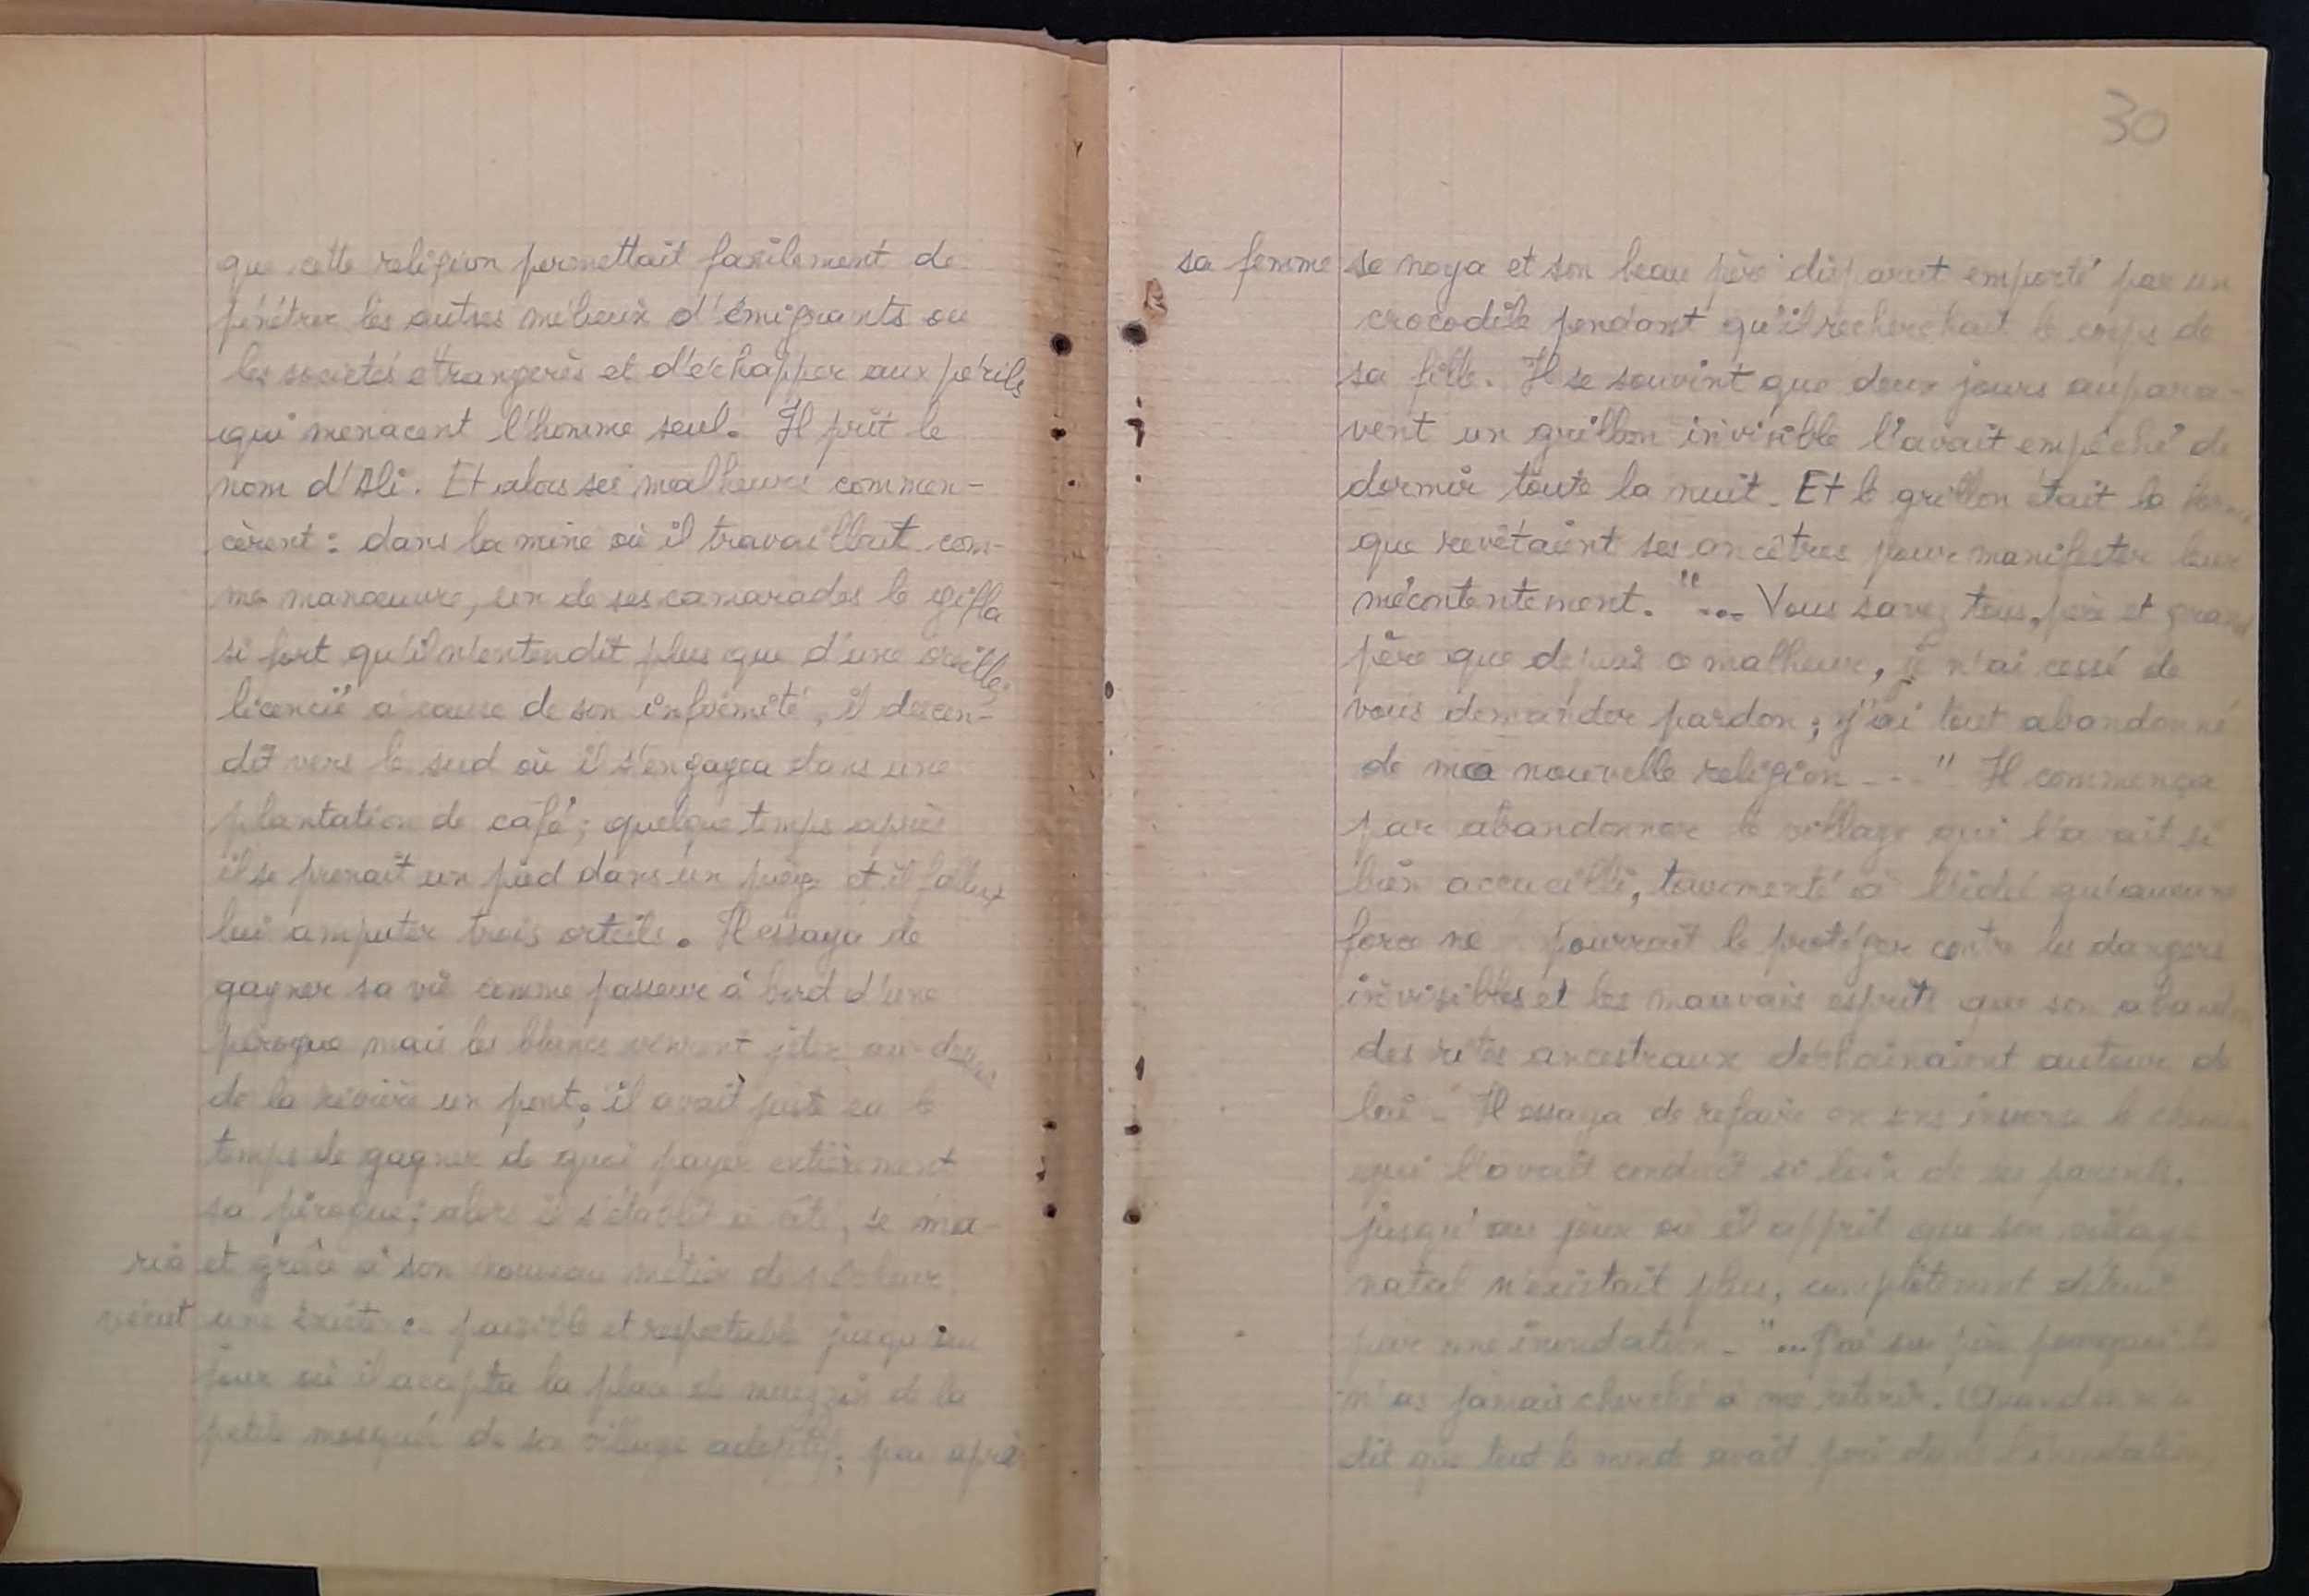 que cette religion permettait facilement de
pénétrer les autres milieux d'émigrants ou
les societés etrangerès et d'échapper aux périls
qui menacent l'homme seul. Il prit le
nom d'Ali. Et alors ses malheurs commen-
cèrent : dans la mine où il travaillait com-
me manœuvre, un de ses camarades le gifla
si fort qu'il n'entendit plus que d'une oreille ;
licencié à cause de son infirmité, il descen-
dit vers le sud où il s'engagea dans une
plantation de café ; quelque temps après
il se prenait un pied dans un piège et il fallut
lui amputer trois orteils. Il essaya de
gagner sa vie comme passeur à bord d'une
pirogue mais les blancs vinrent jeter au-dessus
de la rivière un pont ; il avait juste eu le
temps de gagner de quoi payer entièrement
sa pirogue ; alors il s'établit à côté, se ma-
ria et grâce à son nouveau métier de pêcheur,
vécut une existence paisible et respectable jusqu'au
jour où il accepta la place de muezzin de la
petite mosquée de son village adoptif ; peu après
30
sa femme se noya et son beau père disparut emporté par un
crocodile pendant qu'il recherchait le corps de
sa fille. Il se souvint que deux jours aupara-
vent un grillon invisible l'avait empêché de
dormir toute la nuit. Et le grillon était la forme
que revêtaient ses ancêtres pour manifester leur
mécontentement. "... Vous savez tous, père et grand
père que depuis ce malheur, je n'ai cessé de
vous demander pardon ; j'ai tout abandonné
de ma nouvelle religion ---" Il commença
par abandonner le village qui l'avait si
bien accueilli, tourmenté à l'idée qu'aucune
force ne pourrait le protéger contre les dangers
invisibles et les mauvais esprits que son abandon
des rites ancestraux déchainaient autour de
lui. Il essaya de refaire en sens inverse le chemin
qui l'avait conduit si loin de ses parents,
jusqu'au jour où il apprit que son village
natal n'existait plus, complètement détruit
par une inondation. "... J'ai su père pourquoi tu
n'as jamais cherché à me retenir. Quand on m'a
dit que tout le monde avait péri dans l'inondation,